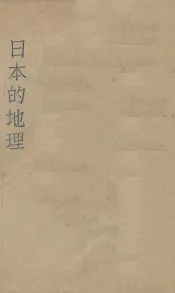 日本的地理